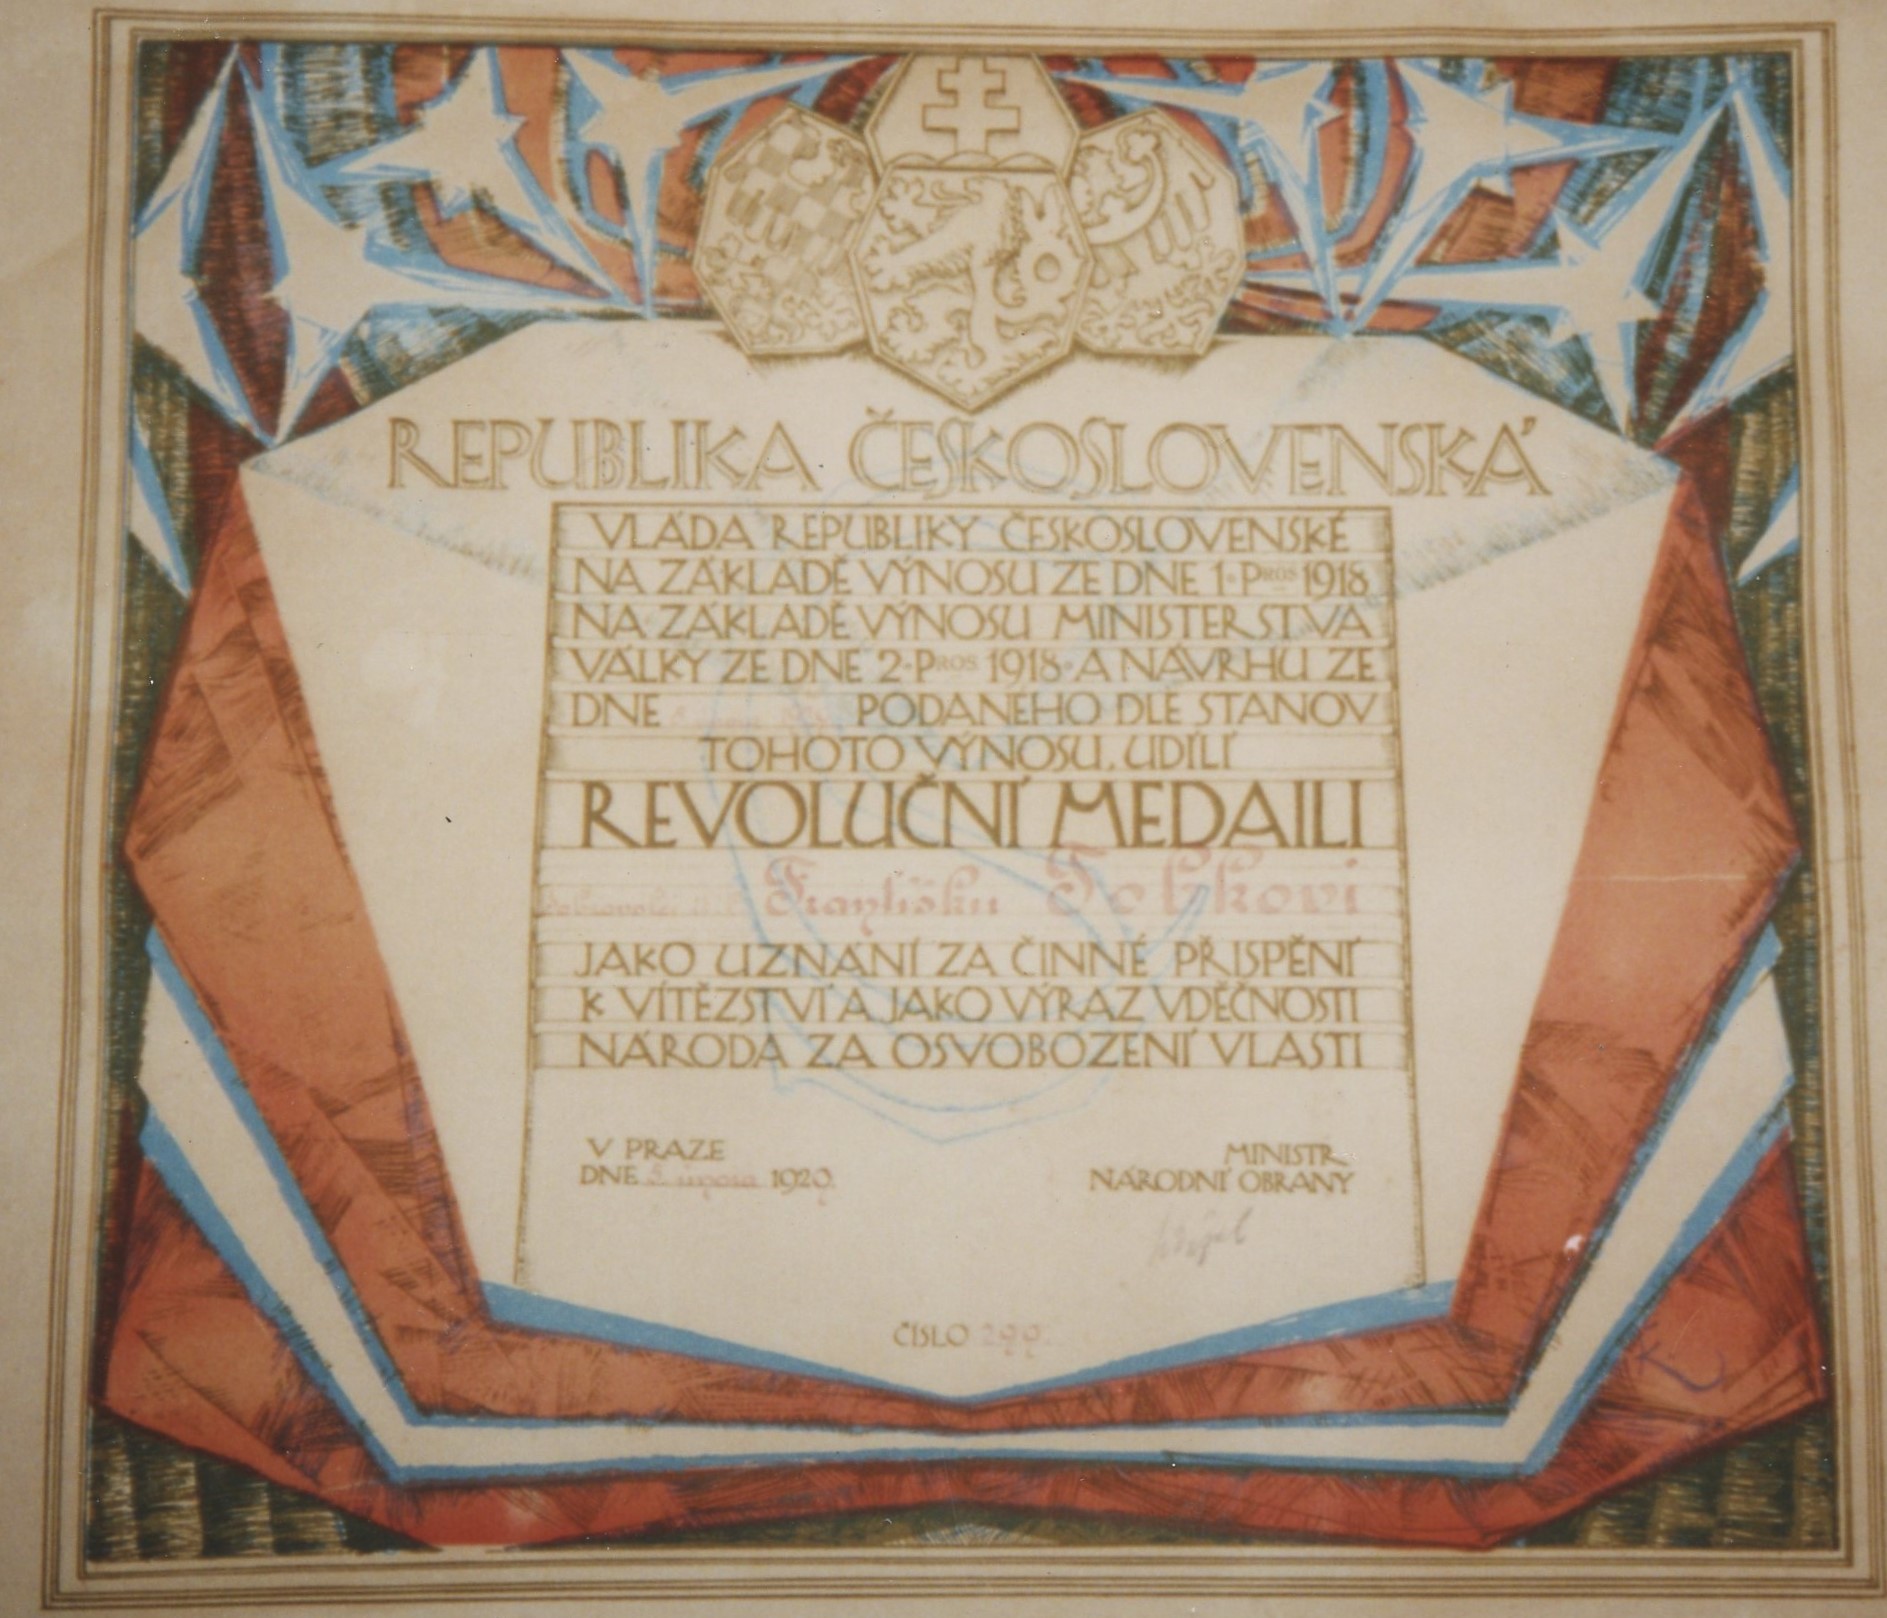 REPUBLIKA ČESKOSLOVENSKÁ
VLÁDA REPUBLIKY ČESKOSLOVENSKÉ
NA ZÁKLADĚ VÝNOSU ZE DNE 1. PROS 1918
NA ZÁKLADĚ VÝNOSU MINISTERSTVA
VÁLKY ZE DNE 2. PROS. 1918. A NÁVRHU ZE
DNE PODANÉHO DLE STANOV
TOHOTO VÝNOSU, UDÍLÍ
REVOLUČNÍ MEDAILI
Františku
JAKO UZNÁNÍ ZA ČINNÉ PŘISPĚNÍ
K VÍTĚZSTVÍ A JAKO VÝRAZ VDĚČNOSTI
NÁRODA ZA OSVOBOZENÍ VLASTI
V PRAZE
DNE 5. února 1920.
MINISTR
NÁRODNÍ OBRANY
ČÍSLO 299.